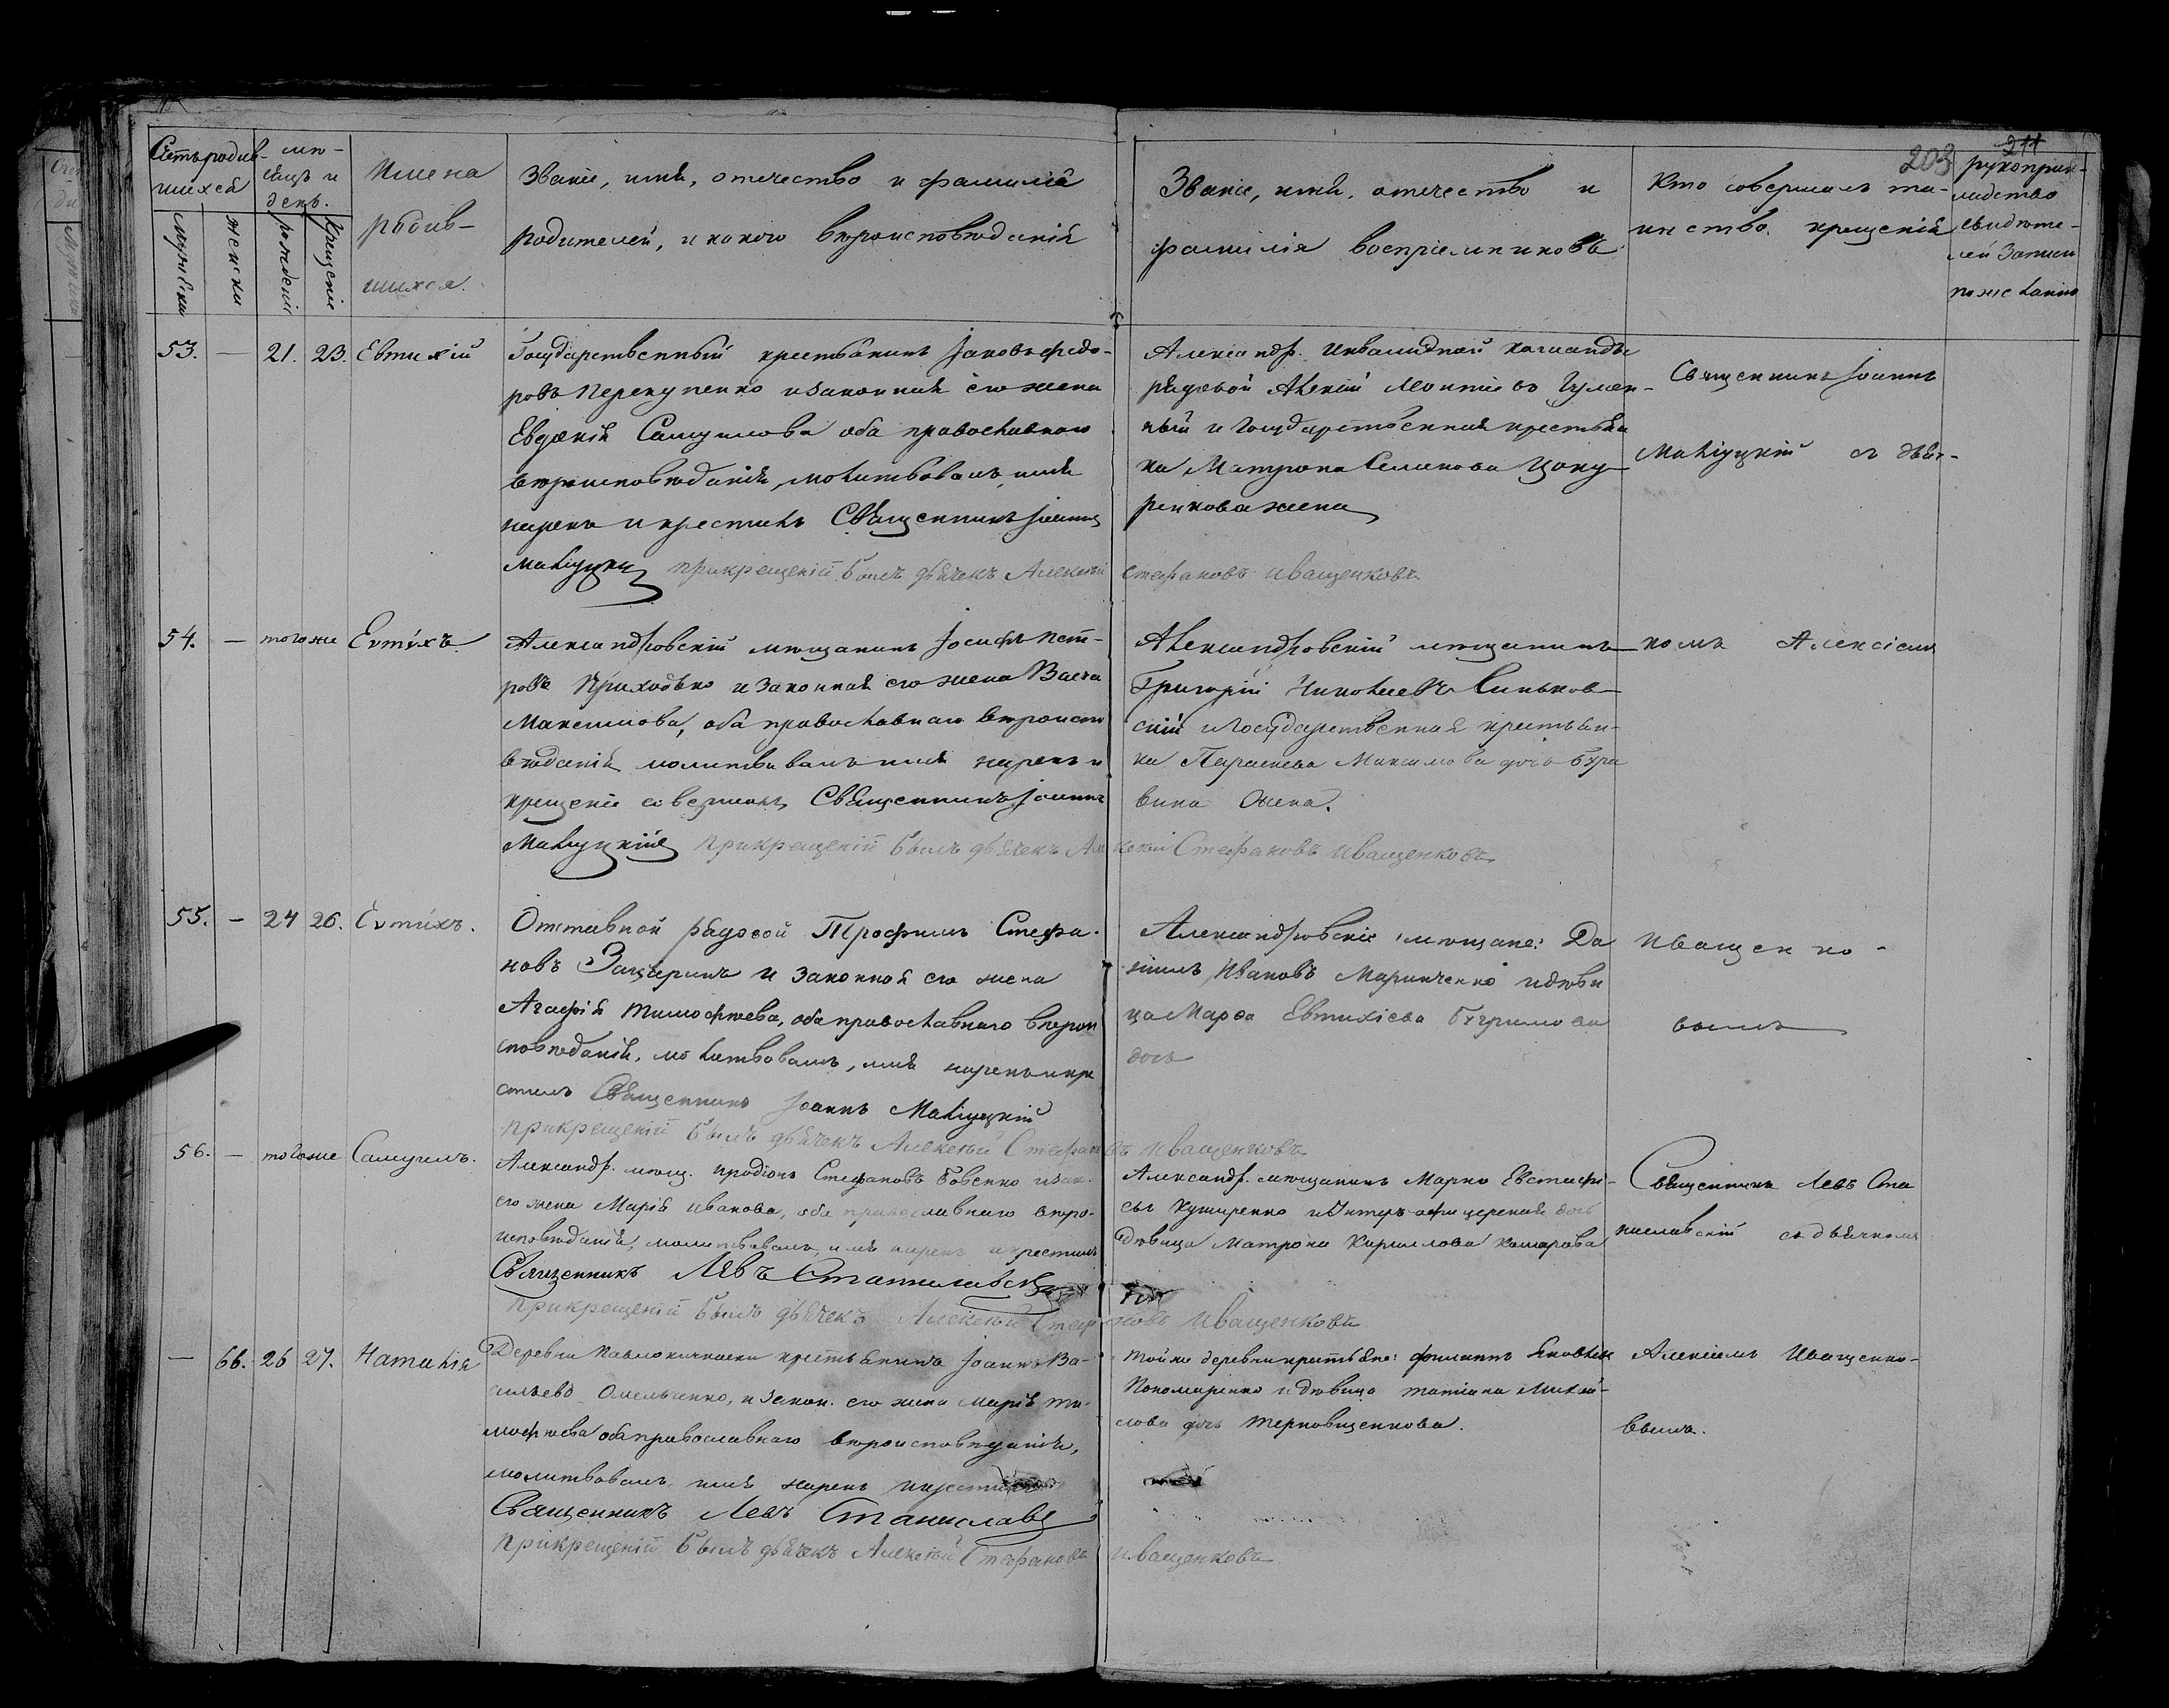 203
211
Счетъ родив-
шихся
мѣ-
сяцъ и
день.
Имена
родив-
шихся.
Званіе, имя, отечество и фамилія
родителей, и какого вѣроисповѣданія
Званіе, имя, отечество и
фамилія воспріемниковъ
Кто совершалъ та-
инство крещенія
рукоприк-
ладство
свидѣте-
лей записи
по желанію
мужеска
женски
рожденія
крещеніе
53. — 21. 23. Евтихій
Государственный крестьянинъ Іаковъ Федо-
ровъ Перекупенко и законная его жена
Евдокія Самуилова оба православнаго
вѣроисповѣданія, молитвовалъ, имя
нарекъ и крестилъ Священникъ Іоаннъ
при крещеніи былъ дьячекъ Алексѣй Стефановъ Иващенковъ
Александр. Инвалидной команды
рядовой Алексій Леонтіевъ
ный и Государственная крестьян
ка Матрона Симонова
ренкова жена
Священникъ Іоаннъ
съ дьяч-
54. — того же Евтѵхъ
Александровскій мѣщанинъ Іосифъ Пет-
ровъ Приходько и законная его жена Васса
Максимова, оба православнаго вѣроиспо
вѣданія молитвовалъ имя нарекъ и
крещеніе совершилъ Священникъ Іоаннъ
при крещеніи былъ дьячекъ Алексѣй Стефановъ Иващенковъ
Александровскій мѣщанинъ
Григорій Николаевъ Синьков-
скій и Государственная крестьян-
ка Параскева Максимова дочь
вина жена.
комъ Алексіемъ
55. — 24 26. Евтѵхъ.
Отставной рядовой Трофимъ Стефа-
новъ и законная его жена
Агафія Тимофѣева, оба православнаго вѣрои
сповѣданія, молитвовалъ, имя нарекъ и кре
стилъ Священникъ Іоаннъ
при крещеніи былъ дьячекъ Алексѣй Стефановъ Иващенковъ
Александровскіе мѣщане: Да
ніилъ Ивановъ Маринченко и дѣви
ца Марѳа Евтихіева
дочь
Иващенко-
вымъ
56. — того же Самуилъ.
Александр. мѣщ. Иродіонъ Стефановъ Бовенко и зак.
его жена Марія Иванова, оба православнаго вѣро-
исповѣданія, молитвовалъ, имя нарекъ и крестилъ
Священникъ Левъ Станиславскій
при крещеніи былъ дьячекъ Алексѣй Стефановъ Иващенковъ
Александр. мѣщанинъ Марко Евстафі-
евъ Кушниренко и Унтеръ-офицерская дочь
дѣвица Матрона Кириллова Комарова
Священникъ Левъ Ста
ниславскій съ дьячкомъ
— 66. 26 27. Наталія
Деревни Павлокичкаса крестьянинъ Іоаннъ Ва-
сильевъ Омельченко, и закон. его жена Марія Ти-
мофѣева оба православнаго вѣроисповѣданія,
молитвовалъ имя нарекъ и крестилъ
Священникъ Левъ Станиславск
при крещеніи былъ дьячекъ Алексѣй Стефановъ Иващенковъ
той же деревни крестьяне: Филиппъ Яковлевъ
Пономаренко и дѣвица Татіана Михай-
лова дочь Терновщенкова.
Алексіемъ Иващенко-
вымъ.